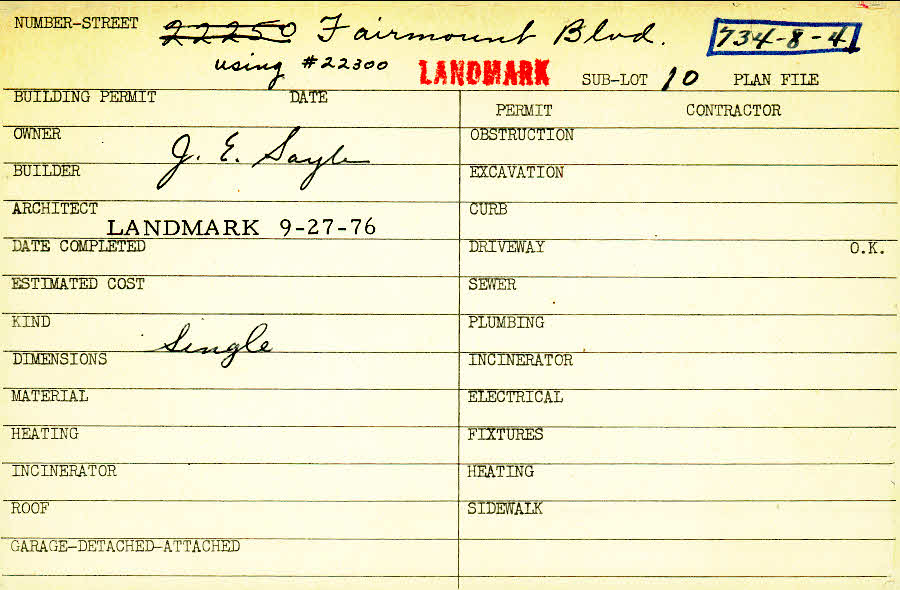 NUMBER-STREET 22250 Fairmount Blvd. 734-8-4
using #22300 LANDMARK SUB-LOT 10 PLAN FILE
BUILDING PERMIT DATE
PERMIT CONTRACTOR
OWNER J. E. Sayle
OBSTRUCTION
BUILDER
EXCAVATION
ARCHITECT LANDMARK 9-27-76
CURB
DATE COMPLETED
DRIVEWAY O.K.
ESTIMATED COST
SEWER
KIND Single
PLUMBING
DIMENSIONS
INCINERATOR
MATERIAL
ELECTRICAL
HEATING
FIXTURES
INCINERATOR
HEATING
ROOF
SIDEWALK
GARAGE-DETACHED-ATTACHED